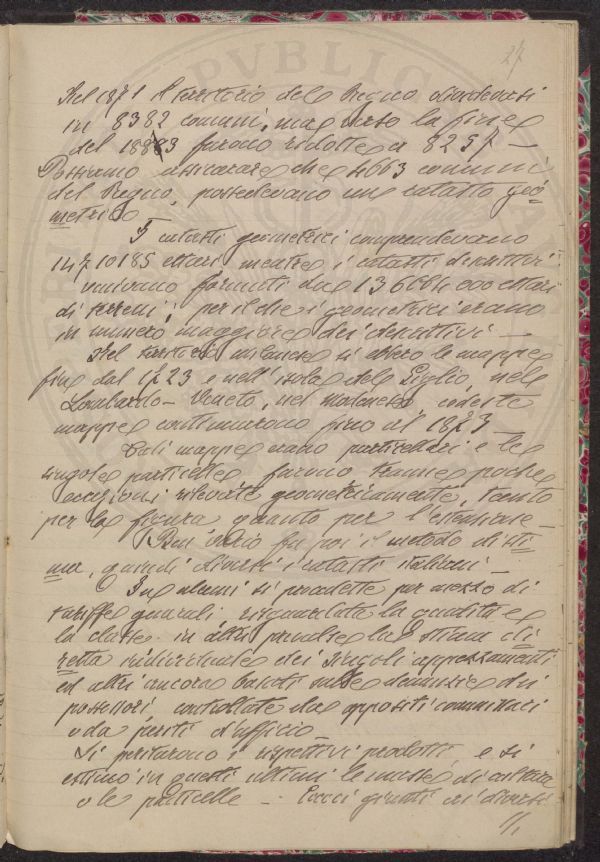 27
Nel 1871 il territorio del Regno dividevasi
in 8382 comuni, ma verso la fine
del 1883 furono ridotte a 8257 —
Possiamo assicurare che 4663 comuni
del Regno, possedevano un catasto geo
metrico
I catasti geometrici comprendevano
14710185 ettari mentre i catasti descrittivi
venivano formati da 13 666 4 000 ettari
di terreni; per il che i geometrici erano
in numero maggiore dei descrittivi —
Nel territorio milanese si ebbero le mappe
fin dal 1723 e nell' isola del Giglio, nel
Lombardo-Veneto, nel modenese codeste
mappe continuarono fino al 1873 —
Tali mappe erano particellari e le
singole particelle furono tranne poche
eccezioni rilevate geometricamente, tanto
per la figura quanto per l'estensione —
Ben vario fu poi il metodo di sti
ma, quindi diversi i catasti italiani —
In alcuni si procedette per mezzo di
tariffe generali riguardate la qualità e
la classe. in altri prevalse la stima di
retta individuale dei singoli appezzamenti
ed altri ancora basati sulle denunzie dei
possessori controllate da appositi commissari
o da periti d'ufficio —
Si peritarono i rispettivi prodotti e si
in questi ultimi le masse di coltura
o le particelle — giunti ai diversi